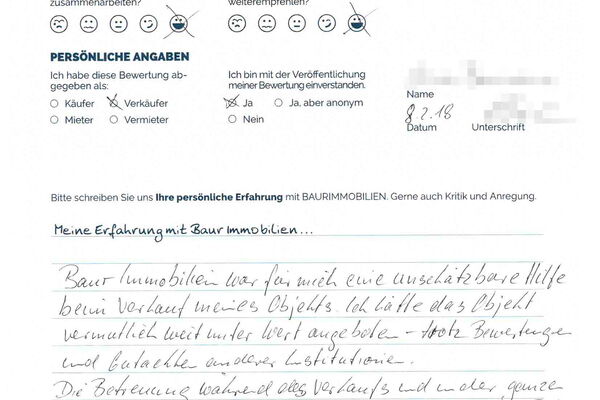 zusammenarbeiten?
weiterempfehlen?
PERSÖNLICHE ANGABEN
Ich habe diese Bewertung ab-
gegeben als:
Käufer Verkäufer
Mieter Vermieter
Ich bin mit der Veröffentlichung
meiner Bewertung einverstanden.
Ja Ja, aber anonym
Nein
Name
8.2.18
Datum Unterschrift
Bitte schreiben Sie uns Ihre persönliche Erfahrung mit BAURIMMOBILIEN. Gerne auch Kritik und Anregung.
Meine Erfahrung mit Baur Immobilien...
Baur Immobilien war für mich eine unschätzbare Hilfe
beim Verkauf meines Objekts. Ich hätte das Objekt
vermutlich weit unter Wert angeboten - trotz Bewertungen
und Gutachten anderer Institutionen.
Die Betreuung während des Verkaufs und in der ganzen